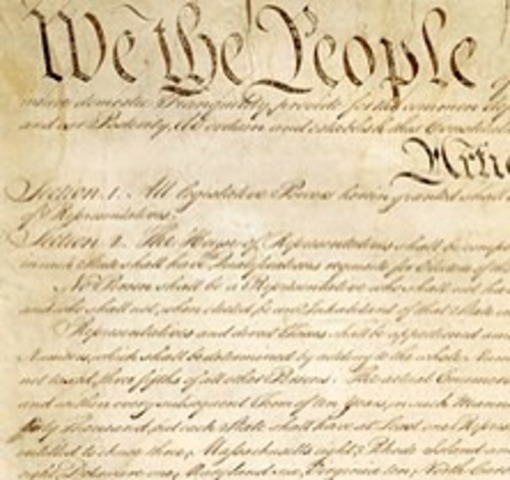 We the People
insure domestic Tranquility, provide for the common
and our Posterity, do ordain and establish this Constitu
Artic
Section. 1. All legislative Powers herein granted shall
of Representatives.
Section. 2. The House of Representatives shall be compos
in each State shall have Qualifications requisite for Electors of the
No Person shall be a Representative who shall not have
and who shall not, when elected, be an Inhabitant of that State
Representatives and direct Taxes shall be apportioned am
Numbers, which shall be determined by adding to the whole Num
not taxed, three fifths of all other Persons. The actual Enumer
and within every subsequent Term of ten Years, in such Manne
thirty Thousand, but each State shall have at Least one Repres
entitled to chuse three, Massachusetts eight, Rhode Island an
eight, Delaware one, Maryland six, Virginia ten, North Caro